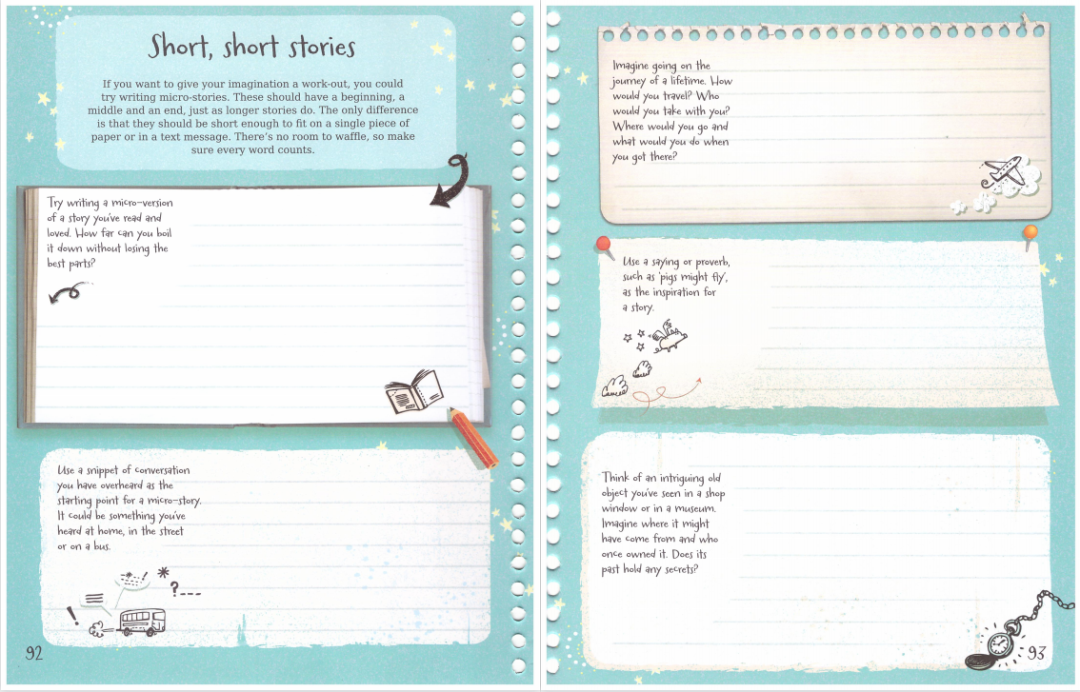 Short, short stories
If you want to give your imagination a work-out, you could
try writing micro-stories. These should have a beginning, a
middle and an end, just as longer stories do. The only difference
is that they should be short enough to fit on a single piece of
paper or in a text message. There's no room to waffle, so make
sure every word counts.
Try writing a micro-version
of a story you've read and
loved. How far can you boil
it down without losing the
best parts?
Use a snippet of conversation
you have overheard as the
starting point for a micro-story.
It could be something you've
heard at home, in the street
or on a bus.
!
*
?---
92
Imagine going on the
journey of a lifetime. How
would you travel? Who
would you take with you?
Where would you go and
what would you do when
you got there?
Use a saying or proverb,
such as 'pigs might fly',
as the inspiration for
a story.
Think of an intriguing old
object you've seen in a shop
window or in a museum.
Imagine where it might
have come from and who
once owned it. Does its
past hold any secrets?
93